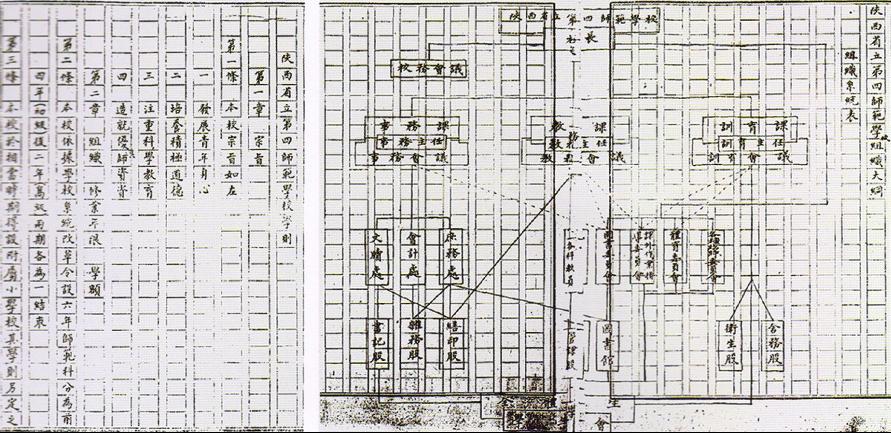 陕西省立第四師範學校學則
第一章 宗旨
第一條 本校宗旨如左
一 發展青年身心
二 培養積極道德
三 注重科學教育
四 造就優良師資
第二章 組織 修業年限 學額
第二條 本校依據學校系統改革令設六年師範科分為前
四年(初級)後二年(高級)兩期各為一結束
第三條 本校於相當時期得設附屬小學校其學則另定之
陕西省立第四師範學校組織大綱
組織系統表
陕西省立第四師範學校
校長
校務會議
事務課
事務主任
事務會議
教務課
教務主任
教務會議
訓育課
訓育主任
訓育會議
文牘處
會計處
庶務處
各科教員
圖書委員會
體育委員會
書記股
雜務股
繕印股
圖書館
衛生股
舍務股